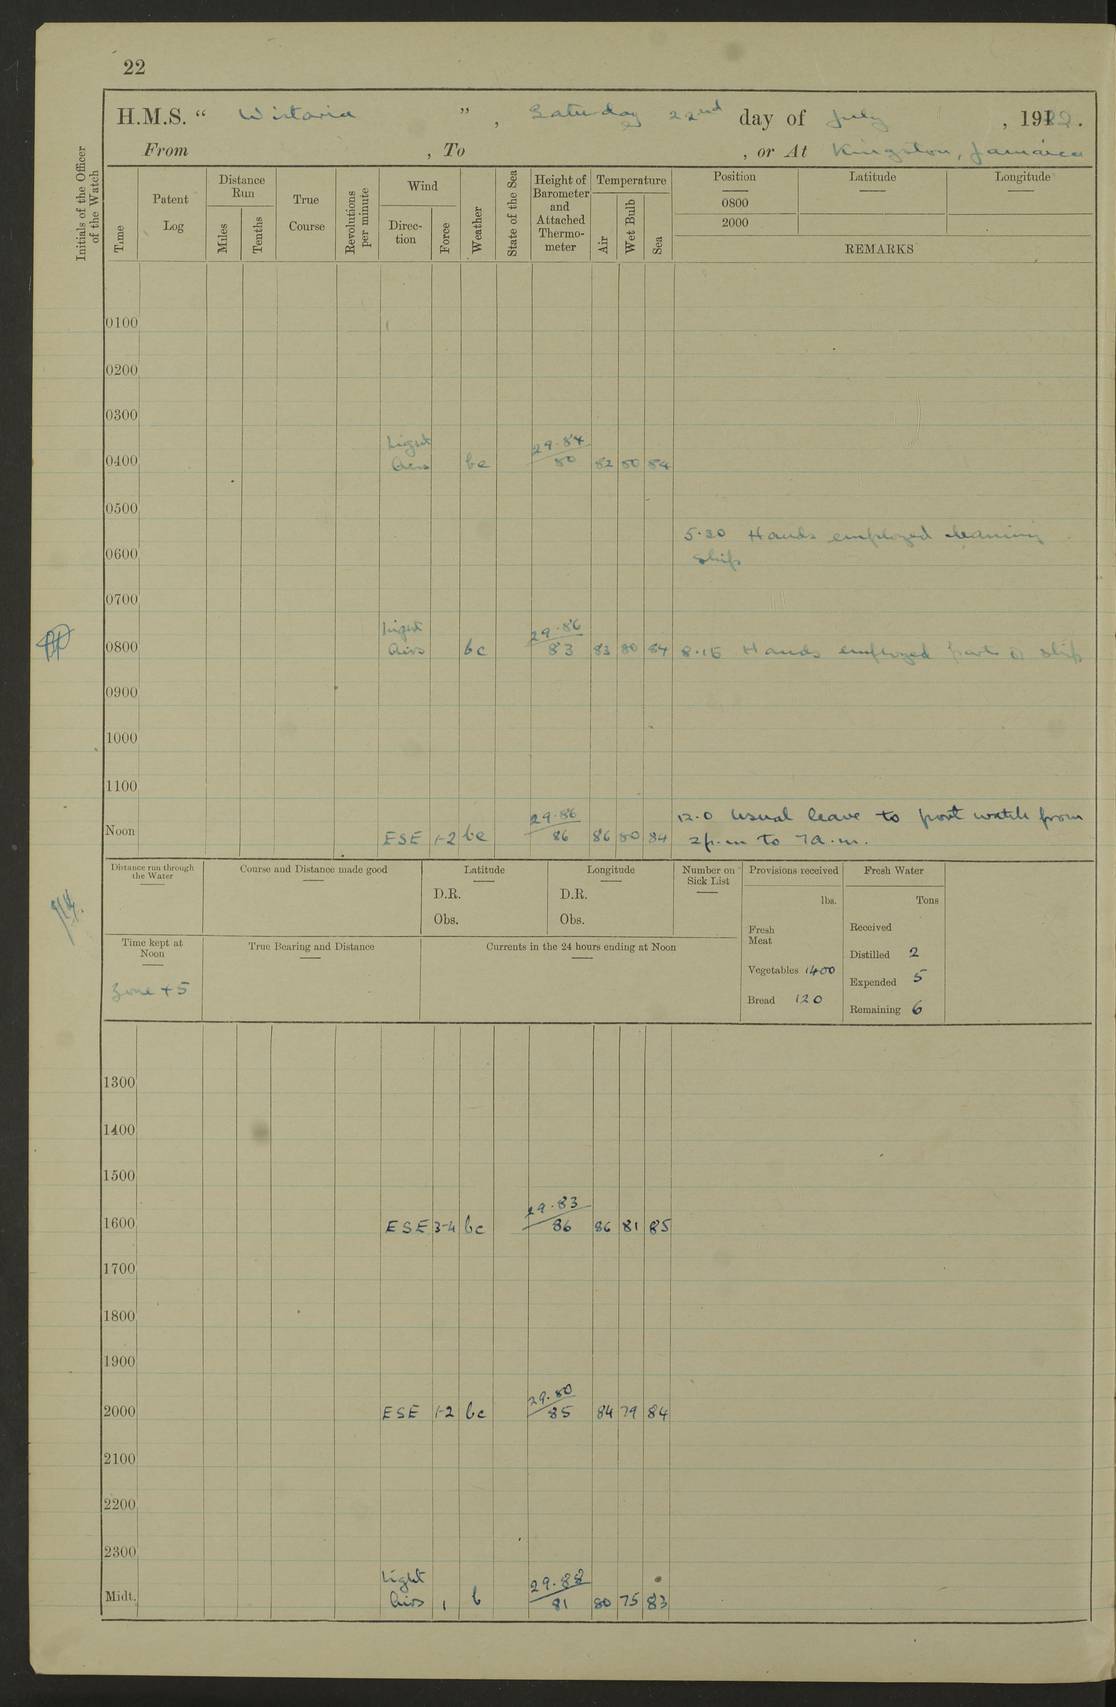 22
H.M.S. " Wistaria ", Saturday 22nd day of July, 1922.
From , To , or At Kingston, Jamaica
Initials of the Officer of the Watch
Time
Patent Log
Distance Run
Miles
Tenths
True Course
Revolutions per minute
Wind
Direc-tion
Force
Weather
State of the Sea
Height of Barometer and Attached Thermo-meter
Temperature
Air
Wet Bulb
Sea
Position Latitude Longitude
0800
2000
REMARKS
0100
0200
0300
0400 Light Airs bc 29.84 80 82 80 84
0500
5.30 Hands employed cleaning
0600 ship
0700
0800 Light Airs bc 29.86 83 83 80 84 8.15 Hands employed part of ship
0900
1000
1100
12.0 Usual leave to port watch from
Noon ESE 1-2 bc 29.86 86 86 80 84 2 p.m to 7 a.m.
Distance run through the Water
Course and Distance made good
Latitude
D.R.
Obs.
Longitude
D.R.
Obs.
Number on Sick List
Provisions received
lbs.
Fresh Meat
Vegetables 1400
Bread 120
Fresh Water
Tons
Received
Distilled 2
Expended 5
Remaining 6
Time kept at Noon
Zone + 5
True Bearing and Distance
Currents in the 24 hours ending at Noon
1300
1400
1500
1600 ESE 3-4 bc 29.83 86 86 81 85
1700
1800
1900
2000 ESE 1-2 bc 29.80 85 84 79 84
2100
2200
2300
Midt. Light Airs 1 b 29.88 81 80 75 83